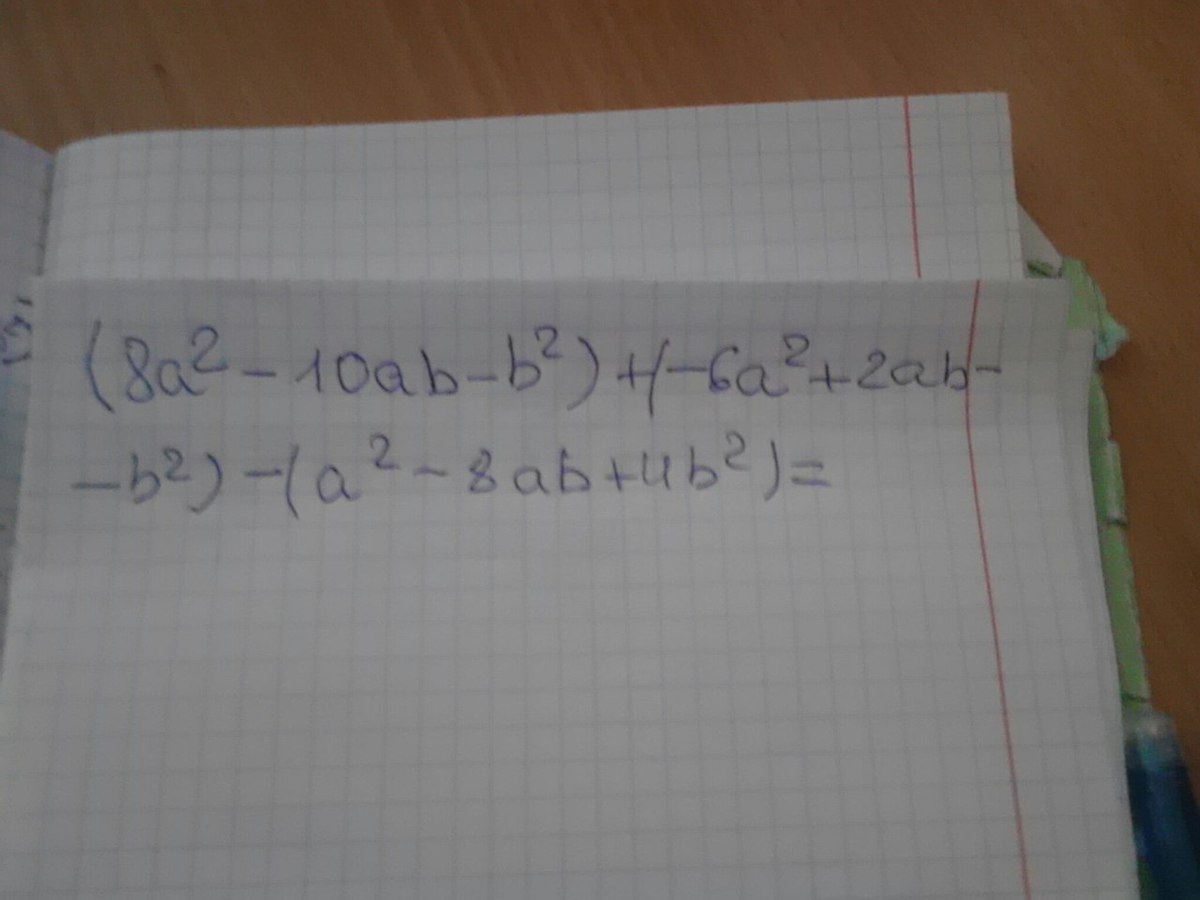 (8a² - 10ab - b²) + (-6a² + 2ab -
- b²) - (a² - 8ab + 4b²) =